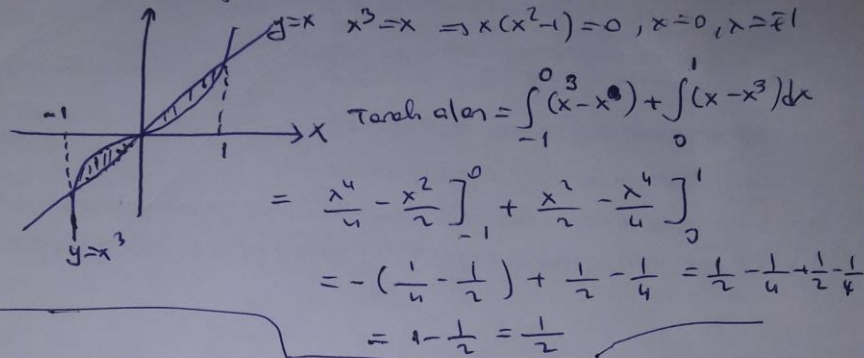 y=x x³=x ⇒ x(x²-1)=0, x=0, x=∓1
-1
1
x
y=x³
Taralı alan = ∫₋₁⁰ (x³-x) + ∫₀¹ (x-x³)dx
= x⁴/4 - x²/2 ]₋₁⁰ + x²/2 - x⁴/4 ]₀¹
= -(1/4 - 1/2) + 1/2 - 1/4 = 1/2 - 1/4 + 1/2 - 1/4
= 1 - 1/2 = 1/2